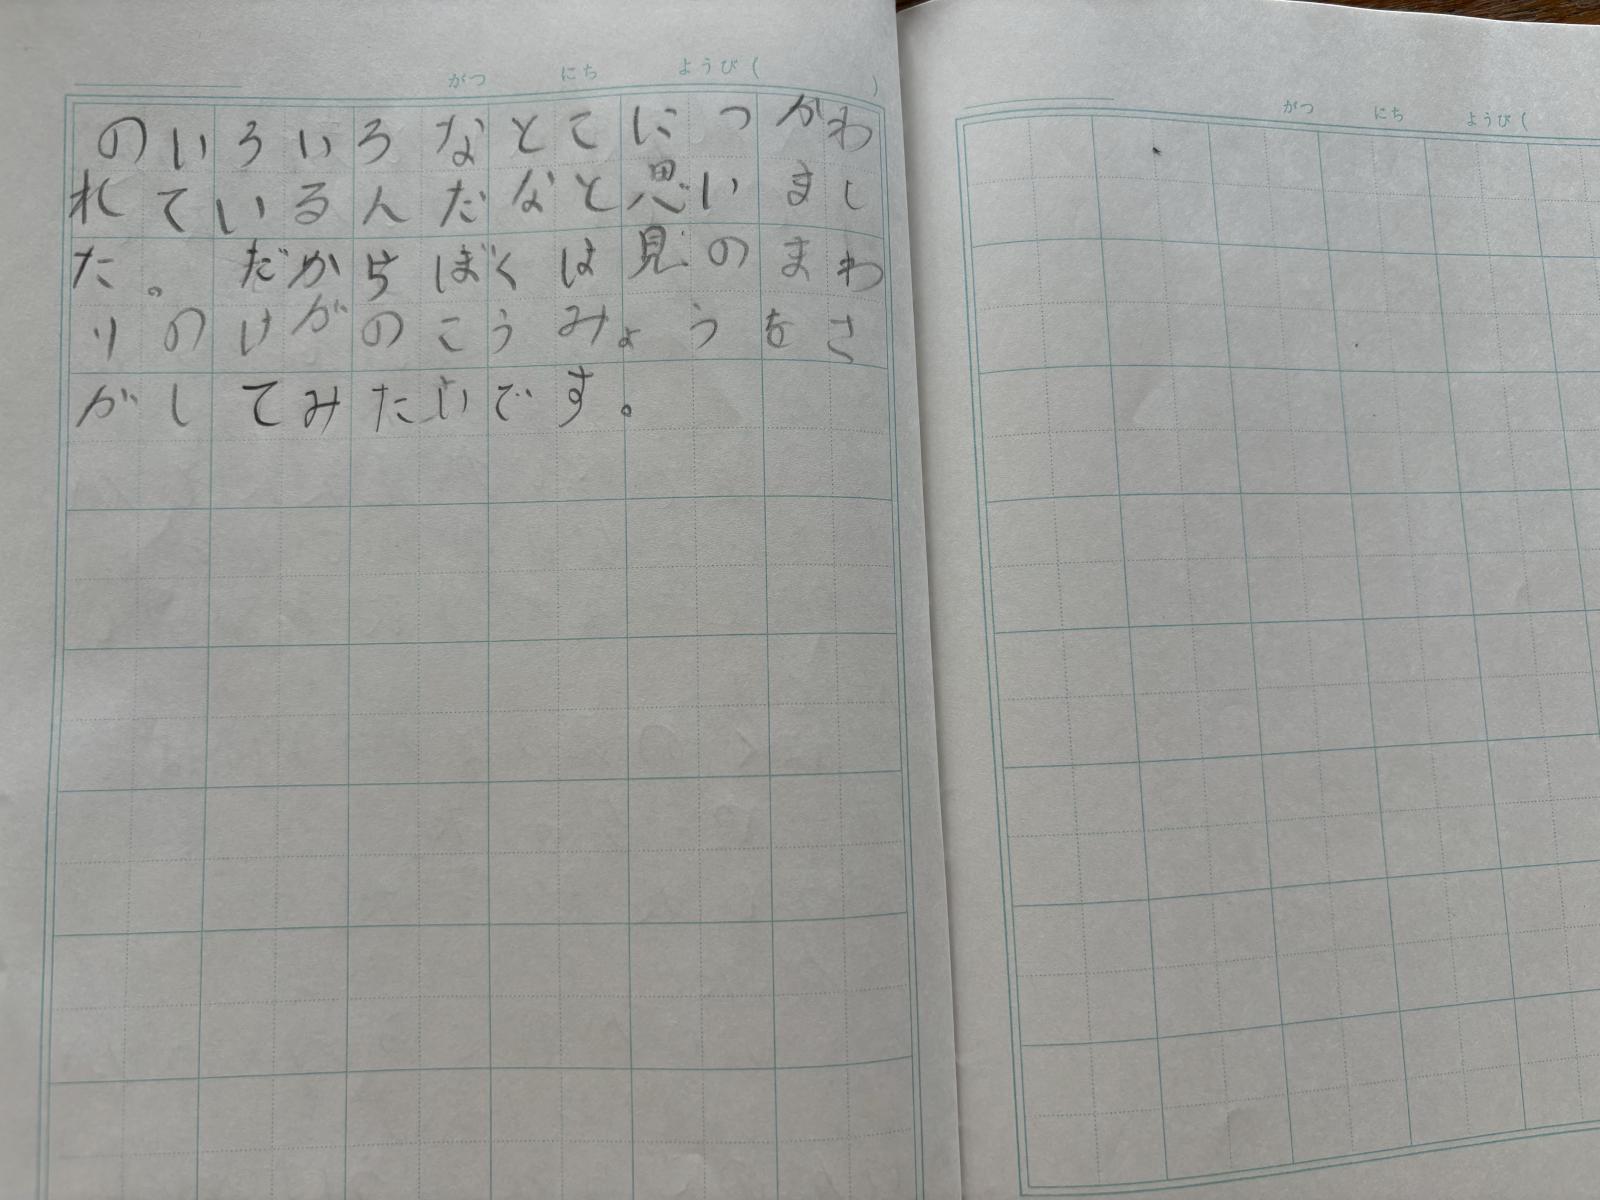 がつ にち ようび( )
のいろいろなとてにつかわ
れているんだなと思いまし
た。だからぼくは見のまわ
りのけがのこうみょうをさ
がしてみたいです。
がつ にち ようび(